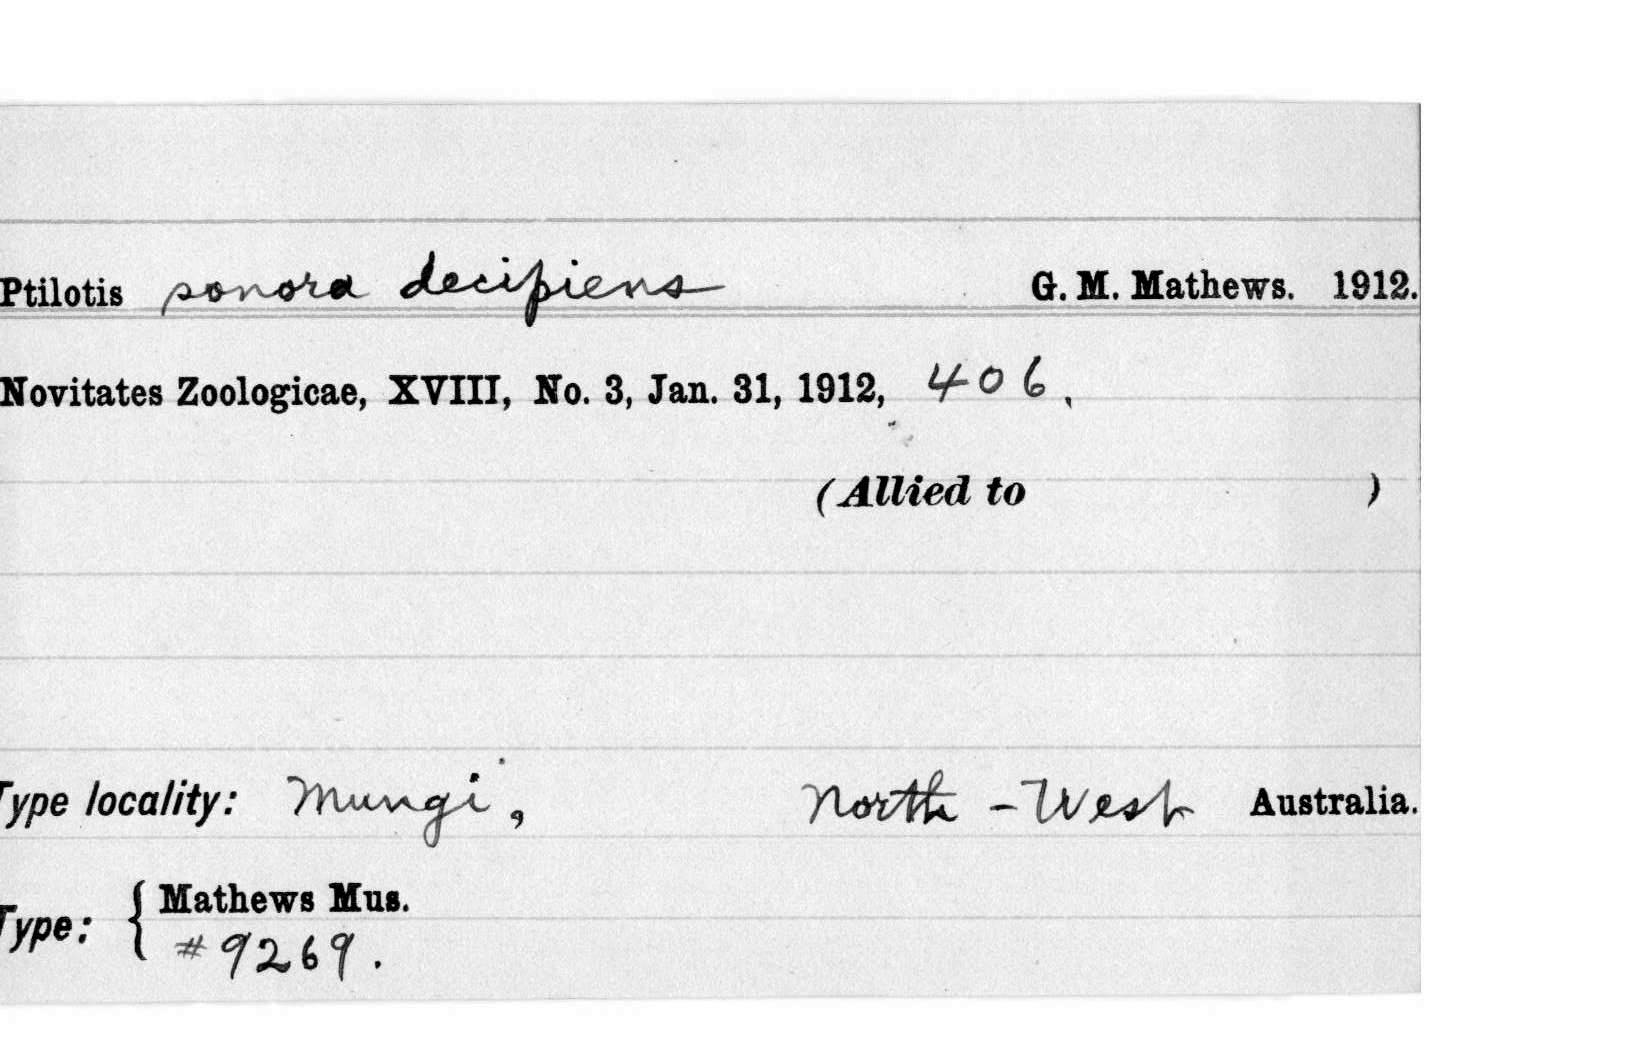 Ptilotis sonora decipiens G. M. Mathews. 1912.
Novitates Zoologicae, XVIII, No. 3, Jan. 31, 1912, 406.
(Allied to )
Type locality: Mungi, North-West Australia.
Type: { Mathews Mus.
#9269.